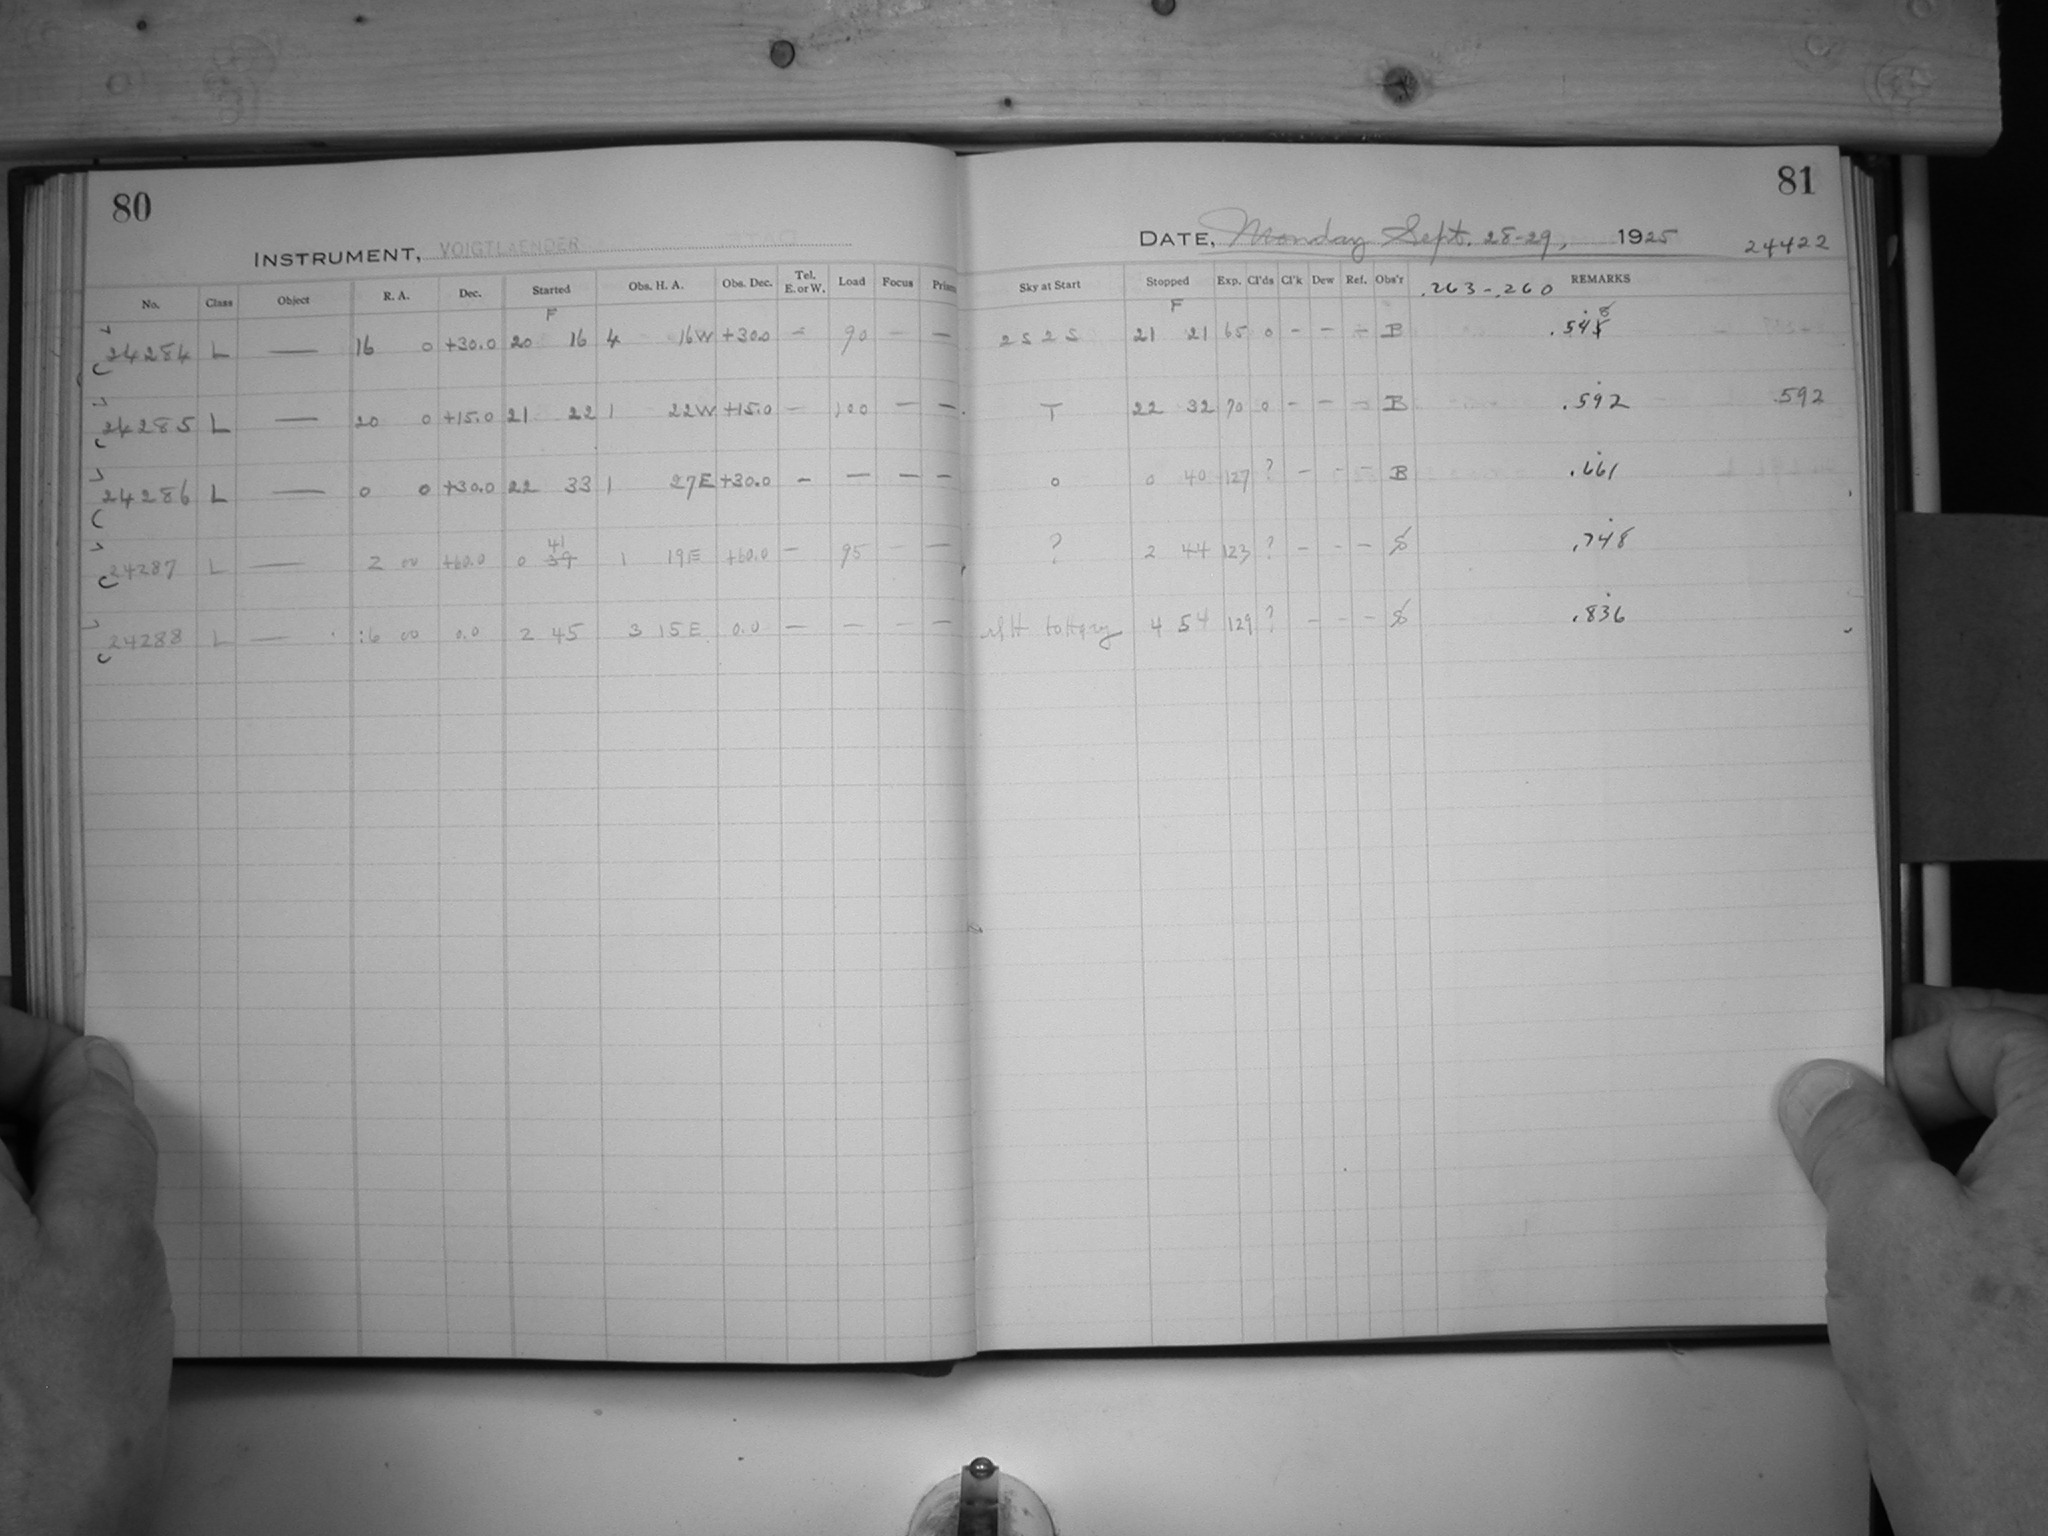 80
INSTRUMENT, VOIGTLAENDER
No. Class Object R. A. Dec. Started Obs. H. A. Obs. Dec. Tel. E. or W. Load Focus Prism
F
24284 L — 16 0 +30.0 20 16 4 16W +30.0 – 90 – –
24285 L — 20 0 +15.0 21 22 1 22W +15.0 – 100 – –
24286 L — 0 0 +30.0 22 33 1 27E +30.0 – — – –
41
24287 L — 2 00 +60.0 0 39 1 19E +60.0 – 95 – –
24288 L — 6 00 0.0 2 45 3 15E 0.0 – – – –
81
DATE, Monday Sept. 28-29, 1925 24422
Sky at Start Stopped Exp. Cl'ds Cl'k Dew Ref. Obs'r REMARKS
.263-.260
F
2 S 2 S 21 21 65 0 – – – B .548
T 22 32 70 0 – – – B .592 .592
0 0 40 127 ? – – – B .661
? 2 44 123 ? – – – .748
to Hazy 4 54 129 ? – – – .836